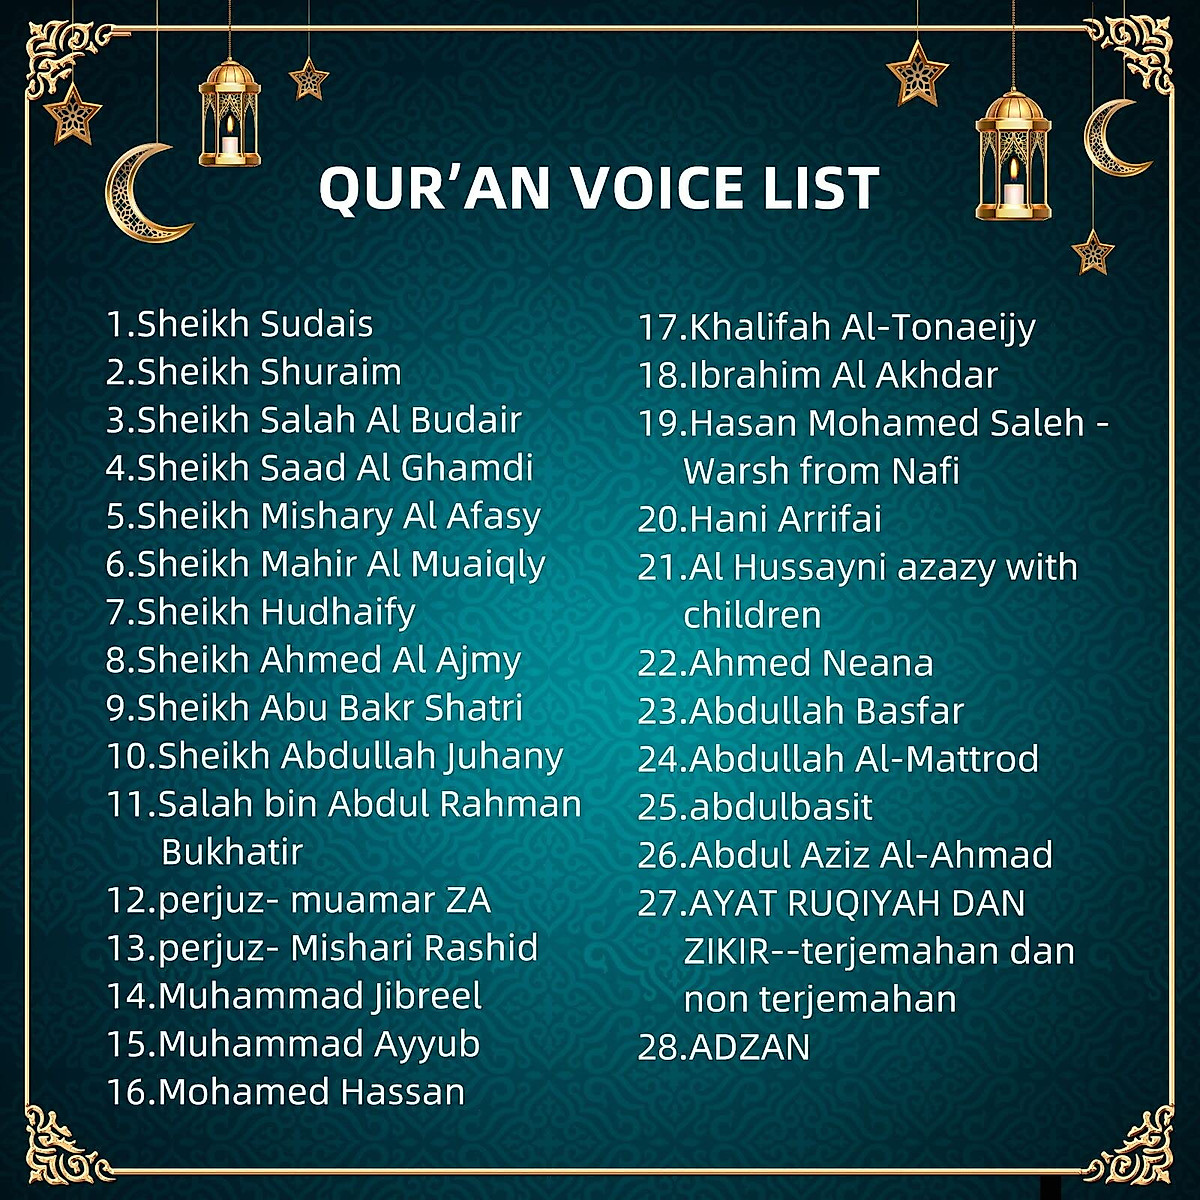 QUR’AN VOICE LIST
1.Sheikh Sudais
2.Sheikh Shuraim
3.Sheikh Salah Al Budair
4.Sheikh Saad Al Ghamdi
5.Sheikh Mishary Al Afasy
6.Sheikh Mahir Al Muaiqly
7.Sheikh Hudhaify
8.Sheikh Ahmed Al Ajmy
9.Sheikh Abu Bakr Shatri
10.Sheikh Abdullah Juhany
11.Salah bin Abdul Rahman
Bukhatir
12.perjuz- muamar ZA
13.perjuz- Mishari Rashid
14.Muhammad Jibreel
15.Muhammad Ayyub
16.Mohamed Hassan
17.Khalifah Al-Tonaeijy
18.Ibrahim Al Akhdar
19.Hasan Mohamed Saleh -
Warsh from Nafi
20.Hani Arrifai
21.Al Hussayni azazy with
children
22.Ahmed Neana
23.Abdullah Basfar
24.Abdullah Al-Mattrod
25.abdulbasit
26.Abdul Aziz Al-Ahmad
27.AYAT RUQIYAH DAN
ZIKIR--terjemahan dan
non terjemahan
28.ADZAN